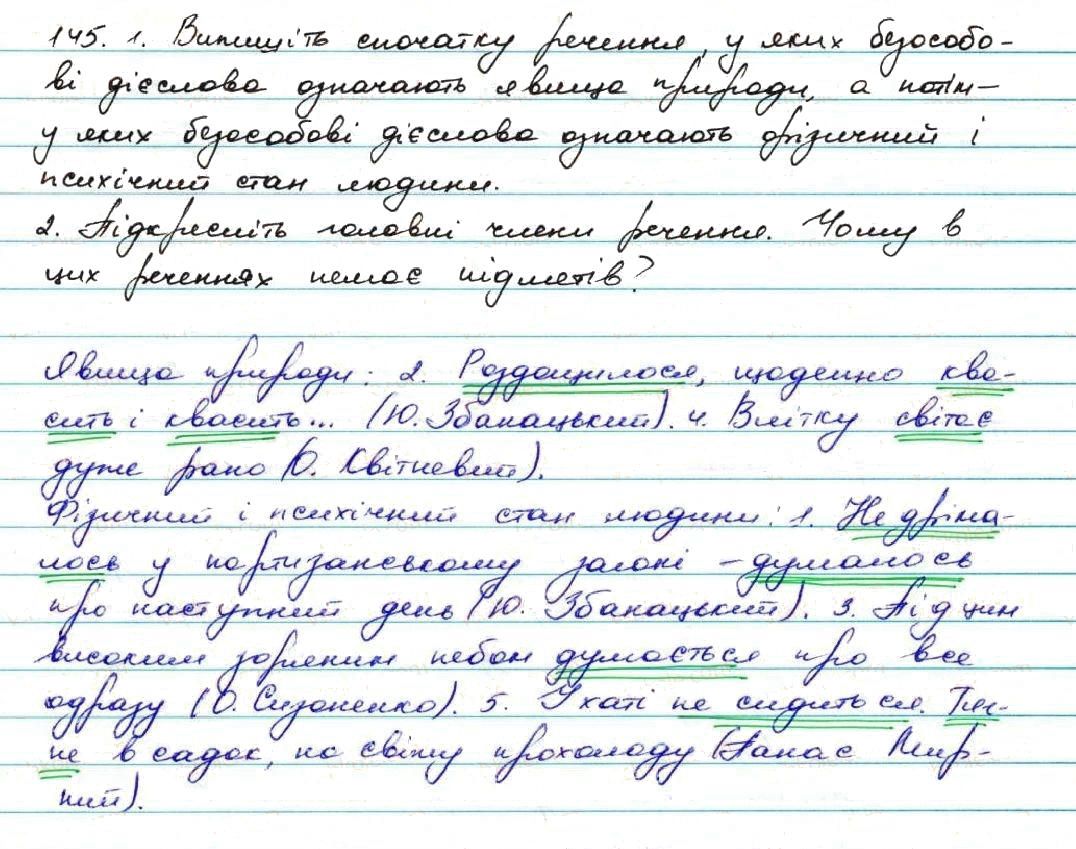 145. 1. Випишіть спочатку речення, у яких безособо-
ві дієслова означають явища природи, а потім-
у яких безособові дієслова означають фізичний і
психічний стан людини.
2. Підкресліть головні члени речення. Чому в
цих реченнях немає підметів?
Явища природи: 2. Роздощилося, щоденно ква-
сить і квасить... (Ю. Збанацький). 4. Влітку світає
дуже рано (О. Квітневий).
Фізичний і психічний стан людини: 1. Не дріма-
лось у партизанському загоні - думалось
про наступний день (Ю. Збанацький). 3. Під цим
високим зоряним небом думається про все
одразу (О. Сизоненко). 5. У хаті не сидиться. Тяг-
не в садок, на свіжу прохолоду (Панас Мир-
ний).